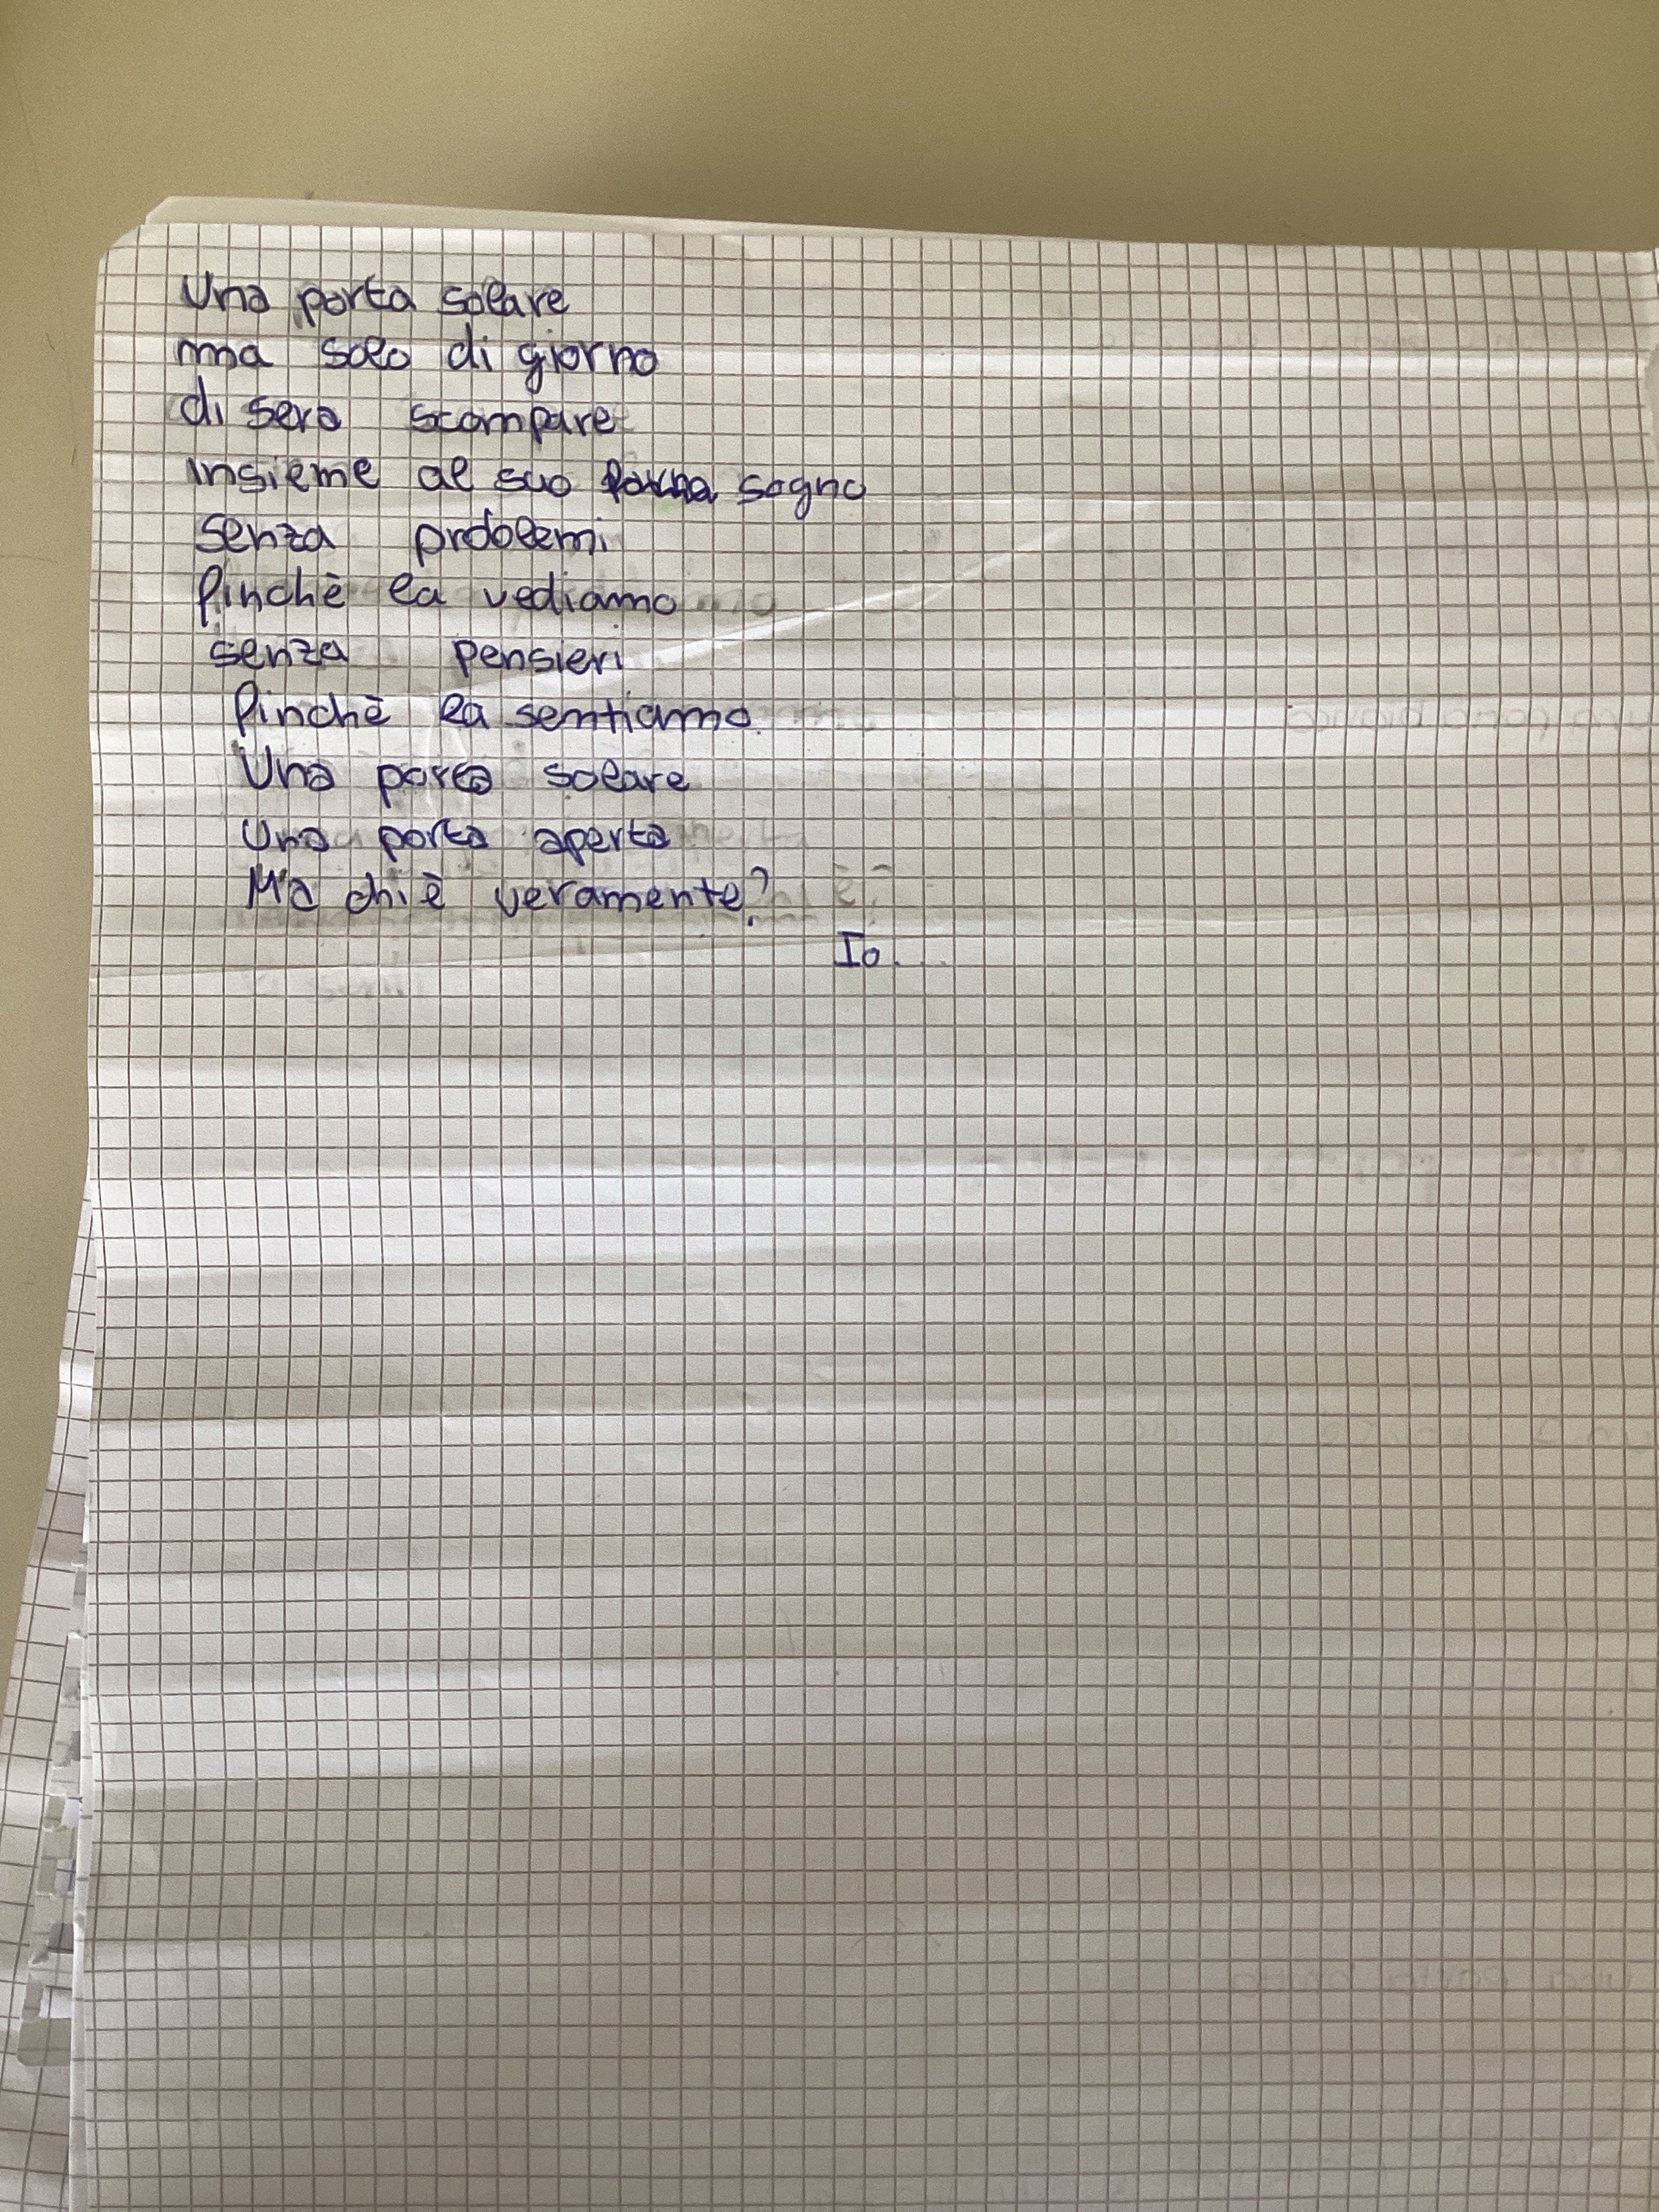 Una porta solare
ma solo di giorno
di sera scompare
insieme al suo sogno
senza problemi
finchè la vediamo
senza pensieri
finchè la sentiamo
Una porta solare
Una porta aperta
Ma chi è veramente?
Io...